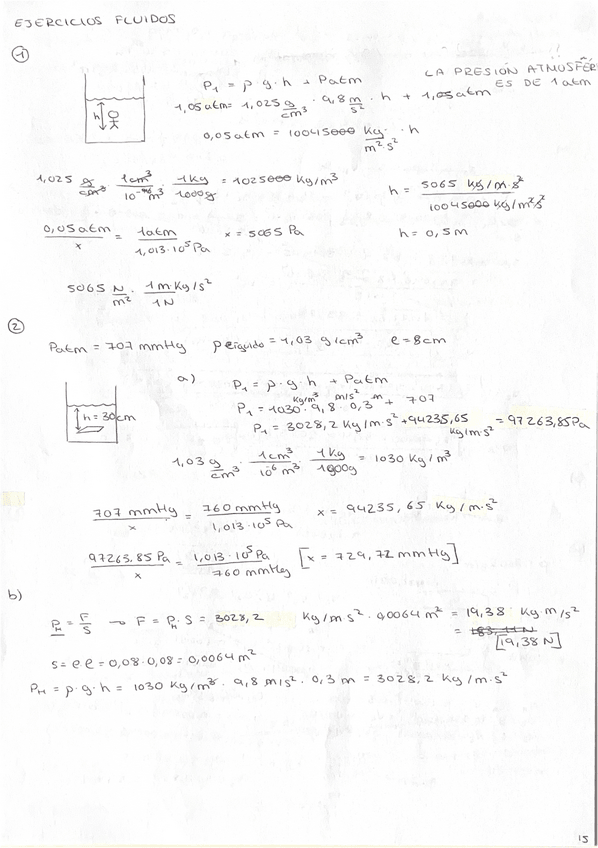 EJERCICIOS FLUIDOS
①
P₁ = ρ · g · h + Patm
LA PRESIÓN ATMOSFÉR
ES DE 1 atm
1,05 atm = 1,025 g/cm³ · 9,8 m/s² · h + 1,05 atm
h
0,05 atm = 10045000 Kg/m²s² · h
1,025 g/cm³ · 1cm³/10⁻⁶m³ · 1Kg/1000g = 1025000 Kg/m³
h = 5065 Kg/m·s² / 10045000 Kg/m²s²
0,05 atm/x = 1atm/1,013·10⁵ Pa x = 5065 Pa
h = 0,5 m
5065 N/m² · 1 m·Kg/s²/1N
②
Patm = 707 mmHg ρ líquido = 1,03 g/cm³ e = 8cm
a) P₁ = ρ · g · h + Patm
h = 30cm
P₁ = 1030 Kg/m³ · 9,8 m/s² · 0,3 m + 707
P₁ = 3028,2 Kg/m·s² + 94235,65 Kg/m·s² = 97263,85Pa
1,03 g/cm³ · 1cm³/10⁻⁶ m³ · 1Kg/1000g = 1030 Kg/m³
707 mmHg/x = 760 mmHg/1,013·10⁵ Pa x = 94235,65 Kg/m·s²
97263.85 Pa/x = 1,013·10⁵ Pa/760 mmHg [x = 729,72 mmHg]
b)
P_H = F/S → F = P_H · S = 3028,2 Kg/m s² · 0,0064 m² = 19,38 Kg·m/s²
= [19,38 N]
S = e·e = 0,08·0,08 = 0,0064 m²
P_H = ρ · g · h = 1030 Kg/m³ · 9,8 m/s² · 0,3 m = 3028,2 Kg/m·s²
15